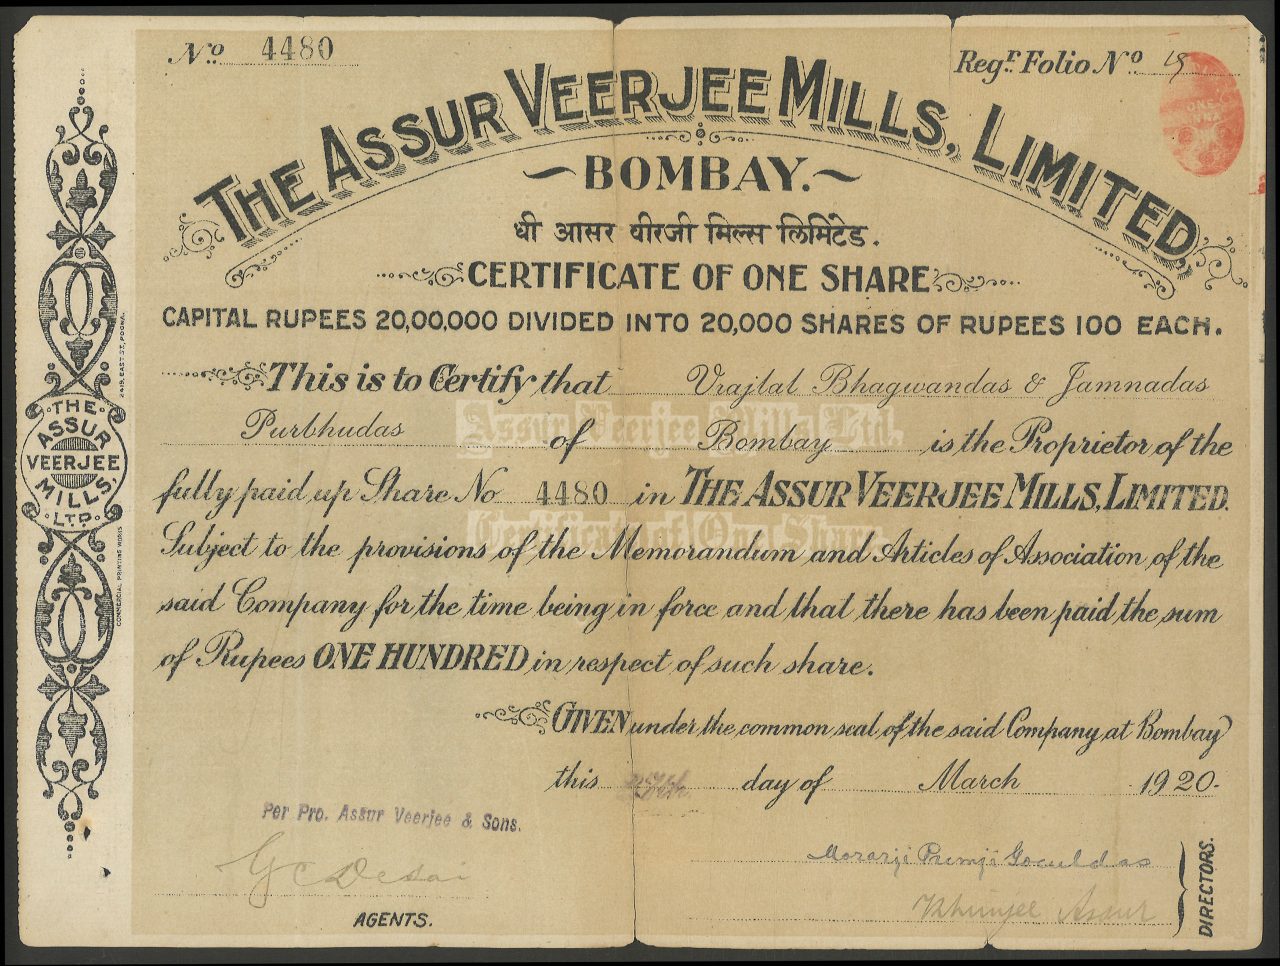 No. 4480
Regr. Folio No 19
ONE ANNA
THE ASSUR VEERJEE MILLS, LIMITED,
BOMBAY.
धी आसर वीरजी मिल्स लिमिटेड.
CERTIFICATE OF ONE SHARE
CAPITAL RUPEES 20,00,000 DIVIDED INTO 20,000 SHARES OF RUPEES 100 EACH.
This is to Certify that Vrajlal Bhagwandas & Jamnadas
Purbhudas of Bombay is the Proprietor of the
Assur Veerjee Mills Ltd.
fully paid up Share No 4480 in THE ASSUR VEERJEE MILLS, LIMITED.
Certificate of One Share
Subject to the provisions of the Memorandum and Articles of Association of the
said Company for the time being in force and that there has been paid the sum
of Rupees ONE HUNDRED in respect of such share.
GIVEN under the common seal of the said Company at Bombay
this day of March 1920.
Per Pro. Assur Veerjee & Sons.
G C Desai
AGENTS.
Morarji Premji Goculdas
Khimjee Assur
DIRECTORS.
THE ASSUR VEERJEE MILLS, LTD.
2419, EAST ST, POONA.
COMMERCIAL PRINTING WORKS